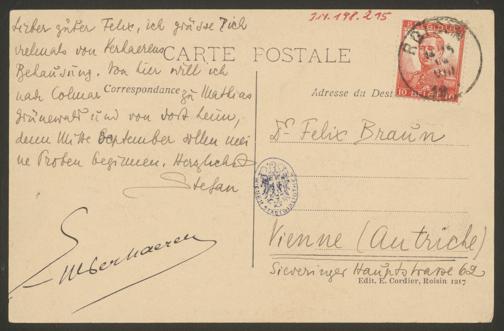 J.N. 198.215
Lieber guter Felix, ich grüsse Dich
vielmals von Verhaerens
Behausung. Von hier will ich
nach Colmar zu Mathias
Grünewald und von dort heim,
denn Mitte September sollen mei
ne Proben beginnen. Herzlichst
Stefan
Verhaeren
CARTE POSTALE
Correspondance
Adresse du Dest
ROISIN
10
Dr Felix Braun
Vienne (Autriche)
Sieveringer Hauptstrasse 62
Edit. E. Cordier, Roisin 1217